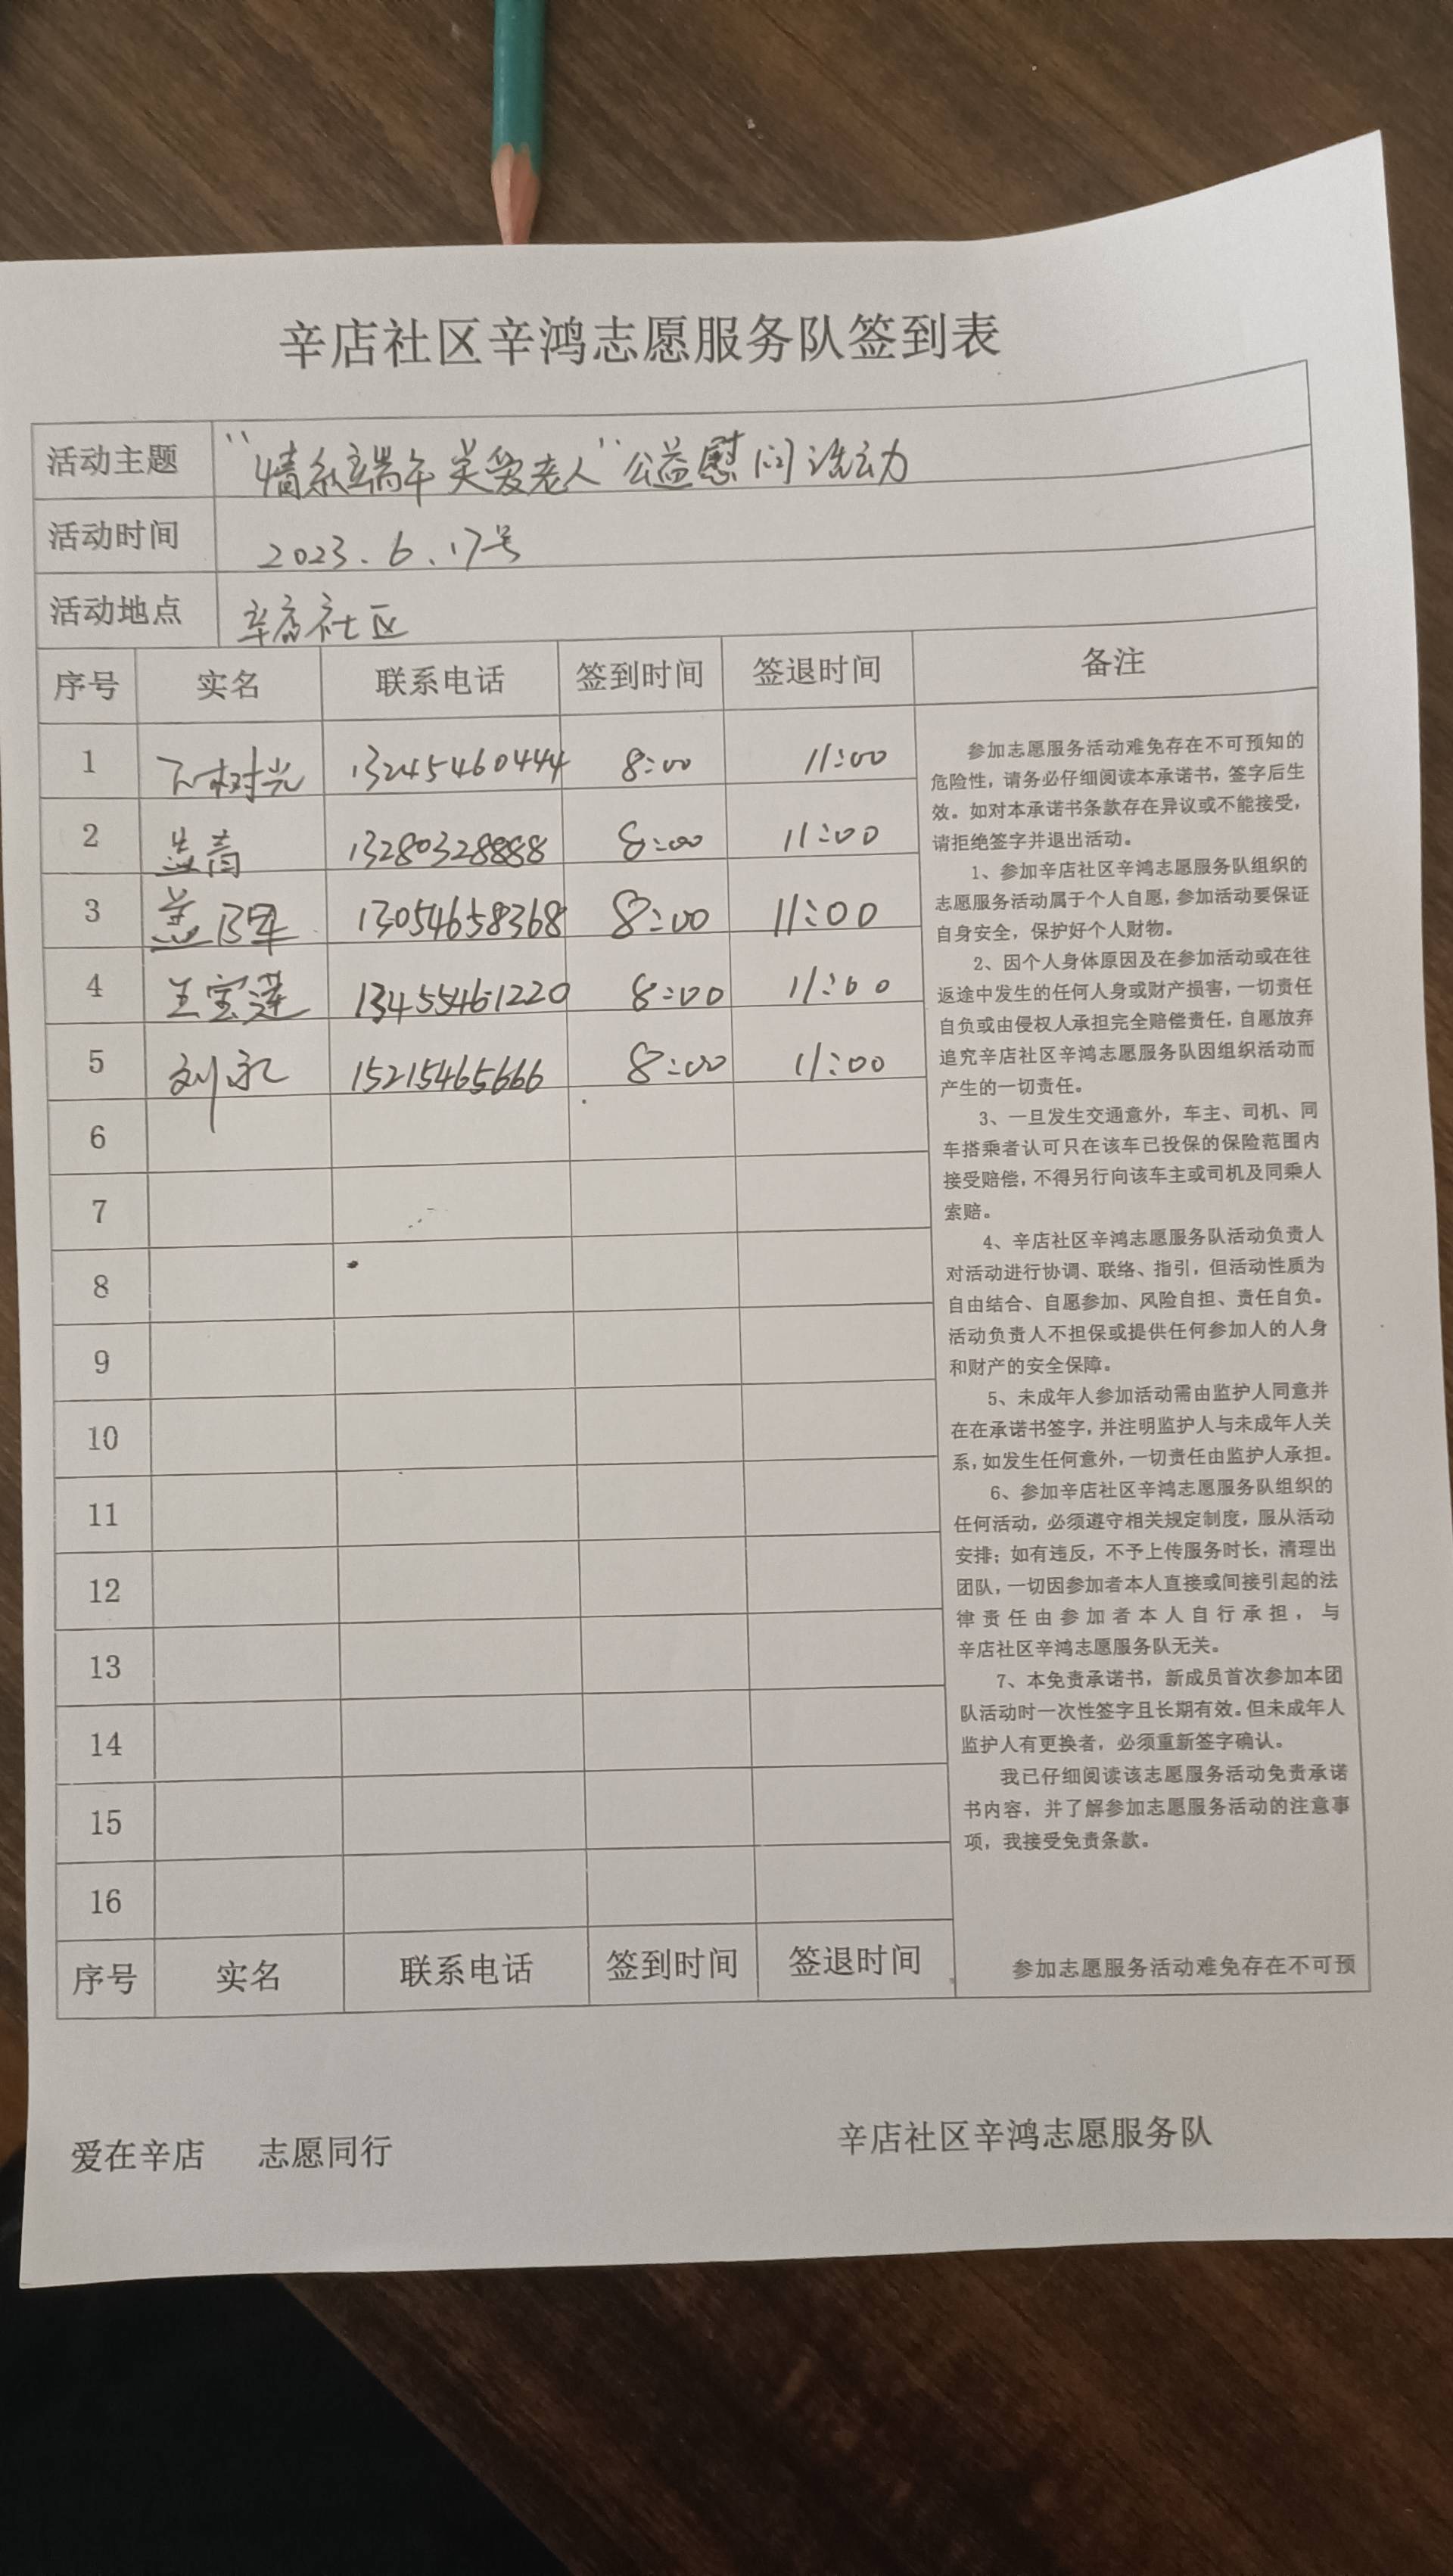 辛店社区辛鸿志愿服务队签到表
活动主题 “情系端午关爱老人”公益慰问活动
活动时间 2023.6.17号
活动地点 辛店社区
序号 实名 联系电话 签到时间 签退时间 备注
1 树光 13245460444 8:00 11:00
2 盖青 13280328888 8:00 11:00
3 盖 13054658368 8:00 11:00
4 王宝莲 13455461220 8:00 11:00
5 刘永 15215465666 8:00 11:00
6
7
8
9
10
11
12
13
14
15
16
序号 实名 联系电话 签到时间 签退时间
参加志愿服务活动难免存在不可预知的
危险性，请务必仔细阅读本承诺书，签字后生
效。如对本承诺书条款存在异议或不能接受，
请拒绝签字并退出活动。
1、参加辛店社区辛鸿志愿服务队组织的
志愿服务活动属于个人自愿，参加活动要保证
自身安全，保护好个人财物。
2、因个人身体原因及在参加活动或在往
返途中发生的任何人身或财产损害，一切责任
自负或由侵权人承担完全赔偿责任，自愿放弃
追究辛店社区辛鸿志愿服务队因组织活动而
产生的一切责任。
3、一旦发生交通意外，车主、司机、同
车搭乘者认可只在该车已投保的保险范围内
接受赔偿，不得另行向该车主或司机及同乘人
索赔。
4、辛店社区辛鸿志愿服务队活动负责人
对活动进行协调、联络、指引，但活动性质为
自由结合、自愿参加、风险自担、责任自负。
活动负责人不担保或提供任何参加人的人身
和财产的安全保障。
5、未成年人参加活动需由监护人同意并
在在承诺书签字，并注明监护人与未成年人关
系，如发生任何意外，一切责任由监护人承担。
6、参加辛店社区辛鸿志愿服务队组织的
任何活动，必须遵守相关规定制度，服从活动
安排；如有违反，不予上传服务时长，清理出
团队，一切因参加者本人直接或间接引起的法
律责任由参加者本人自行承担，与
辛店社区辛鸿志愿服务队无关。
7、本免责承诺书，新成员首次参加本团
队活动时一次性签字且长期有效。但未成年人
监护人有更换者，必须重新签字确认。
我已仔细阅读该志愿服务活动免责承诺
书内容，并了解参加志愿服务活动的注意事
项，我接受免责条款。
参加志愿服务活动难免存在不可预
爱在辛店 志愿同行 辛店社区辛鸿志愿服务队